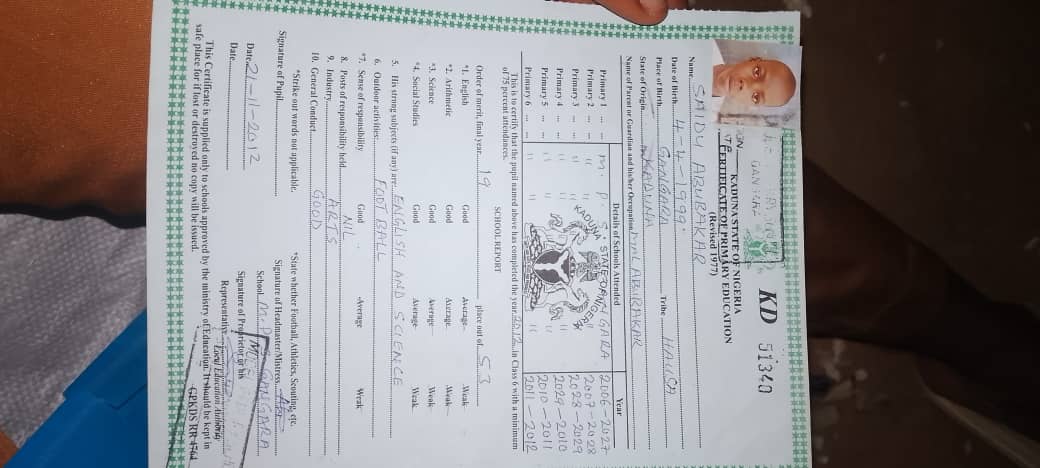 KD 51340
KADUNA STATE OF NIGERIA
CERTIFICATE OF PRIMARY EDUCATION
(Revised 1977)
Name SAIDU ABUBAKAR
Date of Birth 4-4-1999
Place of Birth GANGARA Tribe HAUSA
State of Origin KADUNA
Name of Parent or Guardian and his/her Occupation ABUBAKAR
Details of Schools Attended Year
Primary 1 M. P. S. GANGARA 2006-2027
Primary 2 " " " 2007-2028
Primary 3 " " " 2028-2029
Primary 4 " " " 2029-2010
Primary 5 " " " 2010-2011
Primary 6 " " " 2011-2012
KADUNA STATE OF NIGERIA
This is to certify that the pupil named above has completed the year 2012 in Class 6 with a minimum
of 75 percent attendances.
SCHOOL REPORT
Order of merit, final year 19 place out of 53
*1. English Good Average Weak
*2. Arithmetic Good Average Weak
*3. Science Good Average Weak
*4. Social Studies Good Average Weak
5. His strong subjects (if any) are: ENGLISH AND SCIENCE
6. Outdoor activities: FOOTBALL
*7. Sense of responsibility Good Average Weak
8. Posts of responsibility held NIL
9. Industry ARTS
10. General Conduct GOOD
*Strike out words not applicable. *State whether Football, Athletics, Scouting, etc.
Signature of Pupil Signature of Headmaster/Mistress
Date 21-11-2012 School M.P.S. GANGARA
Date Signature of Proprietor or his
Representative
Local Education Authority
This Certificate is supplied only to schools approved by the ministry of Education. It should be kept in
safe place for if lost or destroyed no copy will be issued.
GPKDS RR 4764